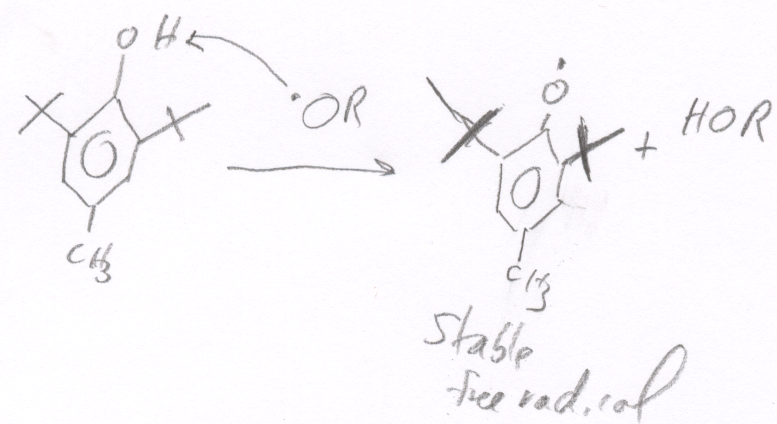 O H
•OR
CH3
Ȯ
+ HOR
CH3
Stable
free radical